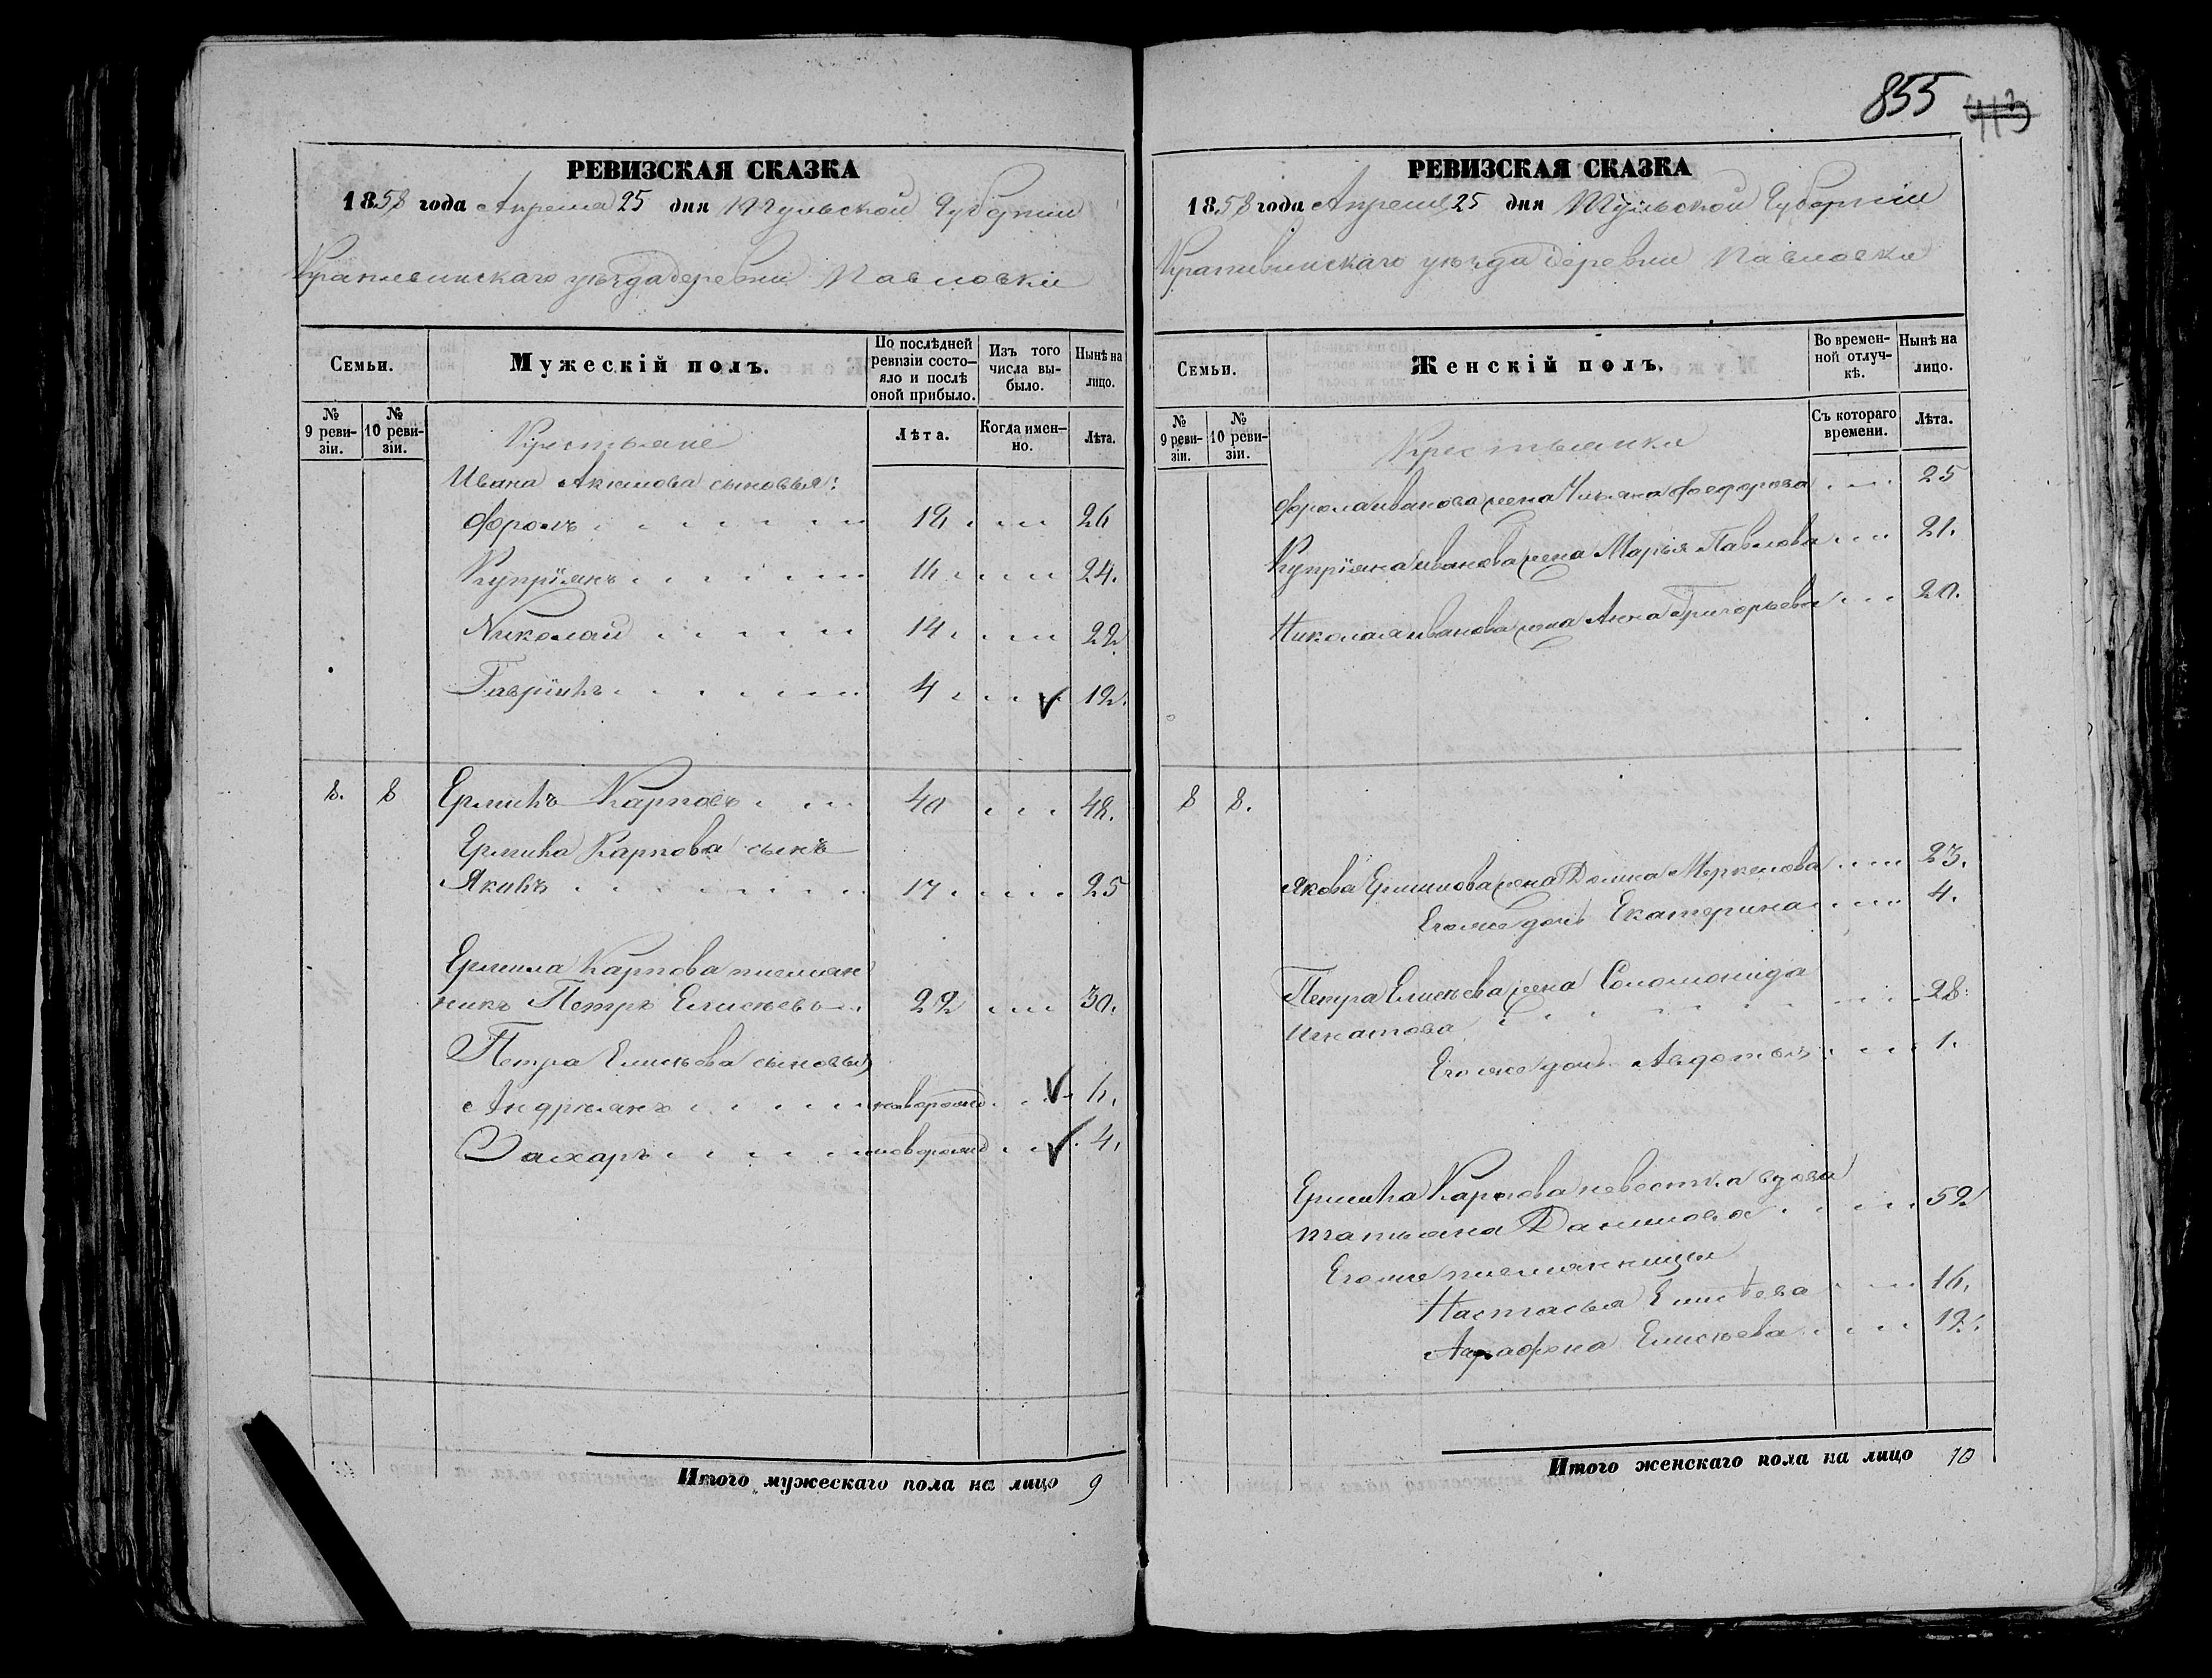 РЕВИЗСКАЯ СКАЗКА
1858 года Апреля 25 дня Тульской Губернии
Крапивинскаго уѣзда деревни Павловки
Семьи.
Мужескій полъ.
По послѣдней ревизіи состояло и послѣ оной прибыло.
Изъ того числа выбыло.
Нынѣ на лицо.
№ 9 ревизіи.
№ 10 ревизіи.
Лѣта.
Когда именно.
Лѣта.
Крестьяне
Ивана Акимова сыновья:
Фролъ 18 26
Купріянъ 16 24.
Николай 14 22
Гаврiилъ 4 12.
8. 8 Ермилъ Карповъ 40 48.
Ермила Карпова сынъ
Яковъ 17 25
Ермила Карпова племян
никъ Петръ Елисѣевъ 22 30.
Петра Елисѣева сыновья
Андреянъ новорожд 6.
Захаръ новорожд 4.
Итого мужескаго пола на лицо 9
855
РЕВИЗСКАЯ СКАЗКА
1858 года Апреля 25 дня Тульской Губернии
Крапивинскаго уѣзда деревни Павловки
Семьи.
Женскій полъ.
Во временной отлучкѣ.
Нынѣ на лицо.
№ 9 ревизіи.
№ 10 ревизіи.
Съ котораго времени.
Лѣта.
Крестьянки
Фрола Иванова жена Ульяна Федорова 25
Купріяна Иванова жена Марья Павлова 21.
Николая Иванова жена Анна Григорьева 20.
8 8.
Якова Ермилова жена Домна Меркелова 23.
Егоже дочь Екатерина 4.
Петра Елисѣева жена Соломонида
Игнатова 28.
Егоже дочь Авдотья 1.
Ермила Карпова невестка вдова
Татьяна Данилова 52
Егоже племянницы
Настасья Елисѣева 16.
Аграфена Елисѣева 12.
Итого женскаго пола на лицо 10